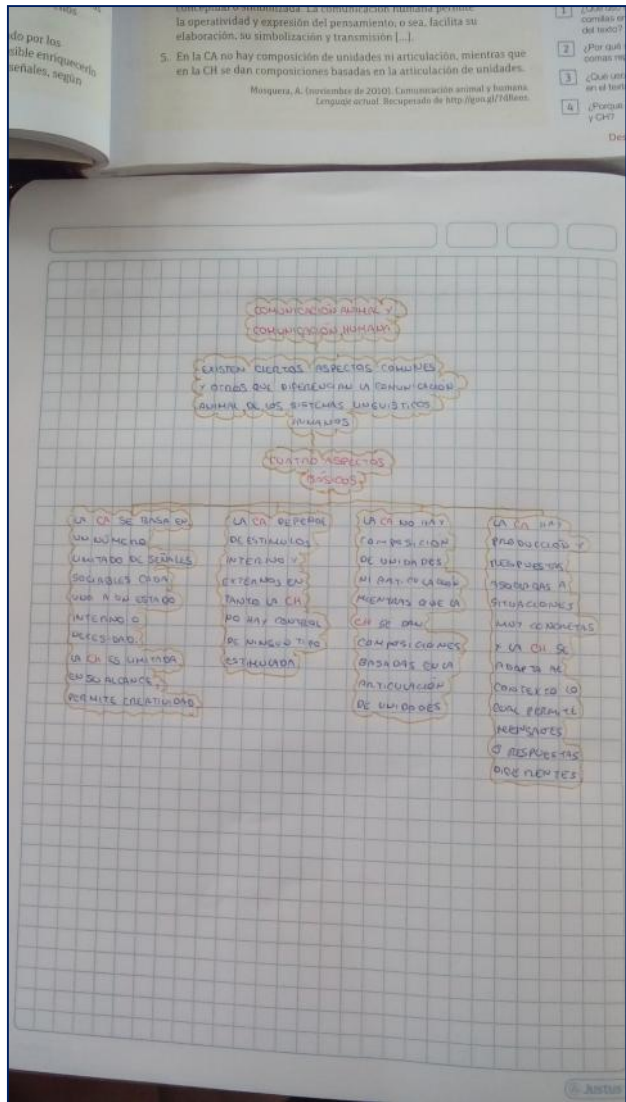 do por los
sible enriquecerlo
señales, según
conceptual o simbolizada. La comunicación humana permite
la operatividad y expresión del pensamiento, o sea, facilita su
elaboración, su simbolización y transmisión [...].
5. En la CA no hay composición de unidades ni articulación, mientras que
en la CH se dan composiciones basadas en la articulación de unidades.
Mosquera, A. (noviembre de 2010). Comunicación animal y humana.
Lenguaje actual. Recuperado de http://goo.gl/
1
comillas en
del texto?
2 ¿Por qué
comas
3 ¿Qué
en el text
4 ¿Porque
y CH?
Des
COMUNICACIÓN ANIMAL Y
COMUNICACIÓN HUMANA
EXISTEN CIERTOS ASPECTOS COMUNES
Y OTROS QUE DIFERENCIAN LA COMUNICACION
ANIMAL DE LOS SISTEMAS LINGUISTICOS
HUMANOS
CUATRO ASPECTOS
BÁSICOS
LA CA SE BASA EN
UN NÚMERO
LIMITADO DE SEÑALES
SOCIABLES CADA
UNO A UN ESTADO
INTERNO O
NECESIDAD.
LA CH ES LIMITADA
EN SU ALCANCE,
PERMITE CREATIVIDAD
LA CA DEPENDE
DE ESTIMULOS
INTERNO Y
EXTERNOS EN
TANTO LA CH
NO HAY CONTROL
DE NINGUN TIPO
ESTIMULADA
LA CA NO HAY
COMPOSICION
DE UNIDADES
NI ARTICULACION
MIENTRAS QUE LA
CH SE DAN
COMPOSICIONES
BASADAS EN LA
ARTICULACIÓN
DE UNIDADES
LA CA HAY
PRODUCCIÓN Y
RESPUESTAS
ASOCIADAS A
SITUACIONES
MUY CONCRETAS
Y LA CH SE
ADAPTA AL
CONTEXTO LO
CUAL PERMITE
MENSAJES
O RESPUESTAS
DIFERENTES
Justus